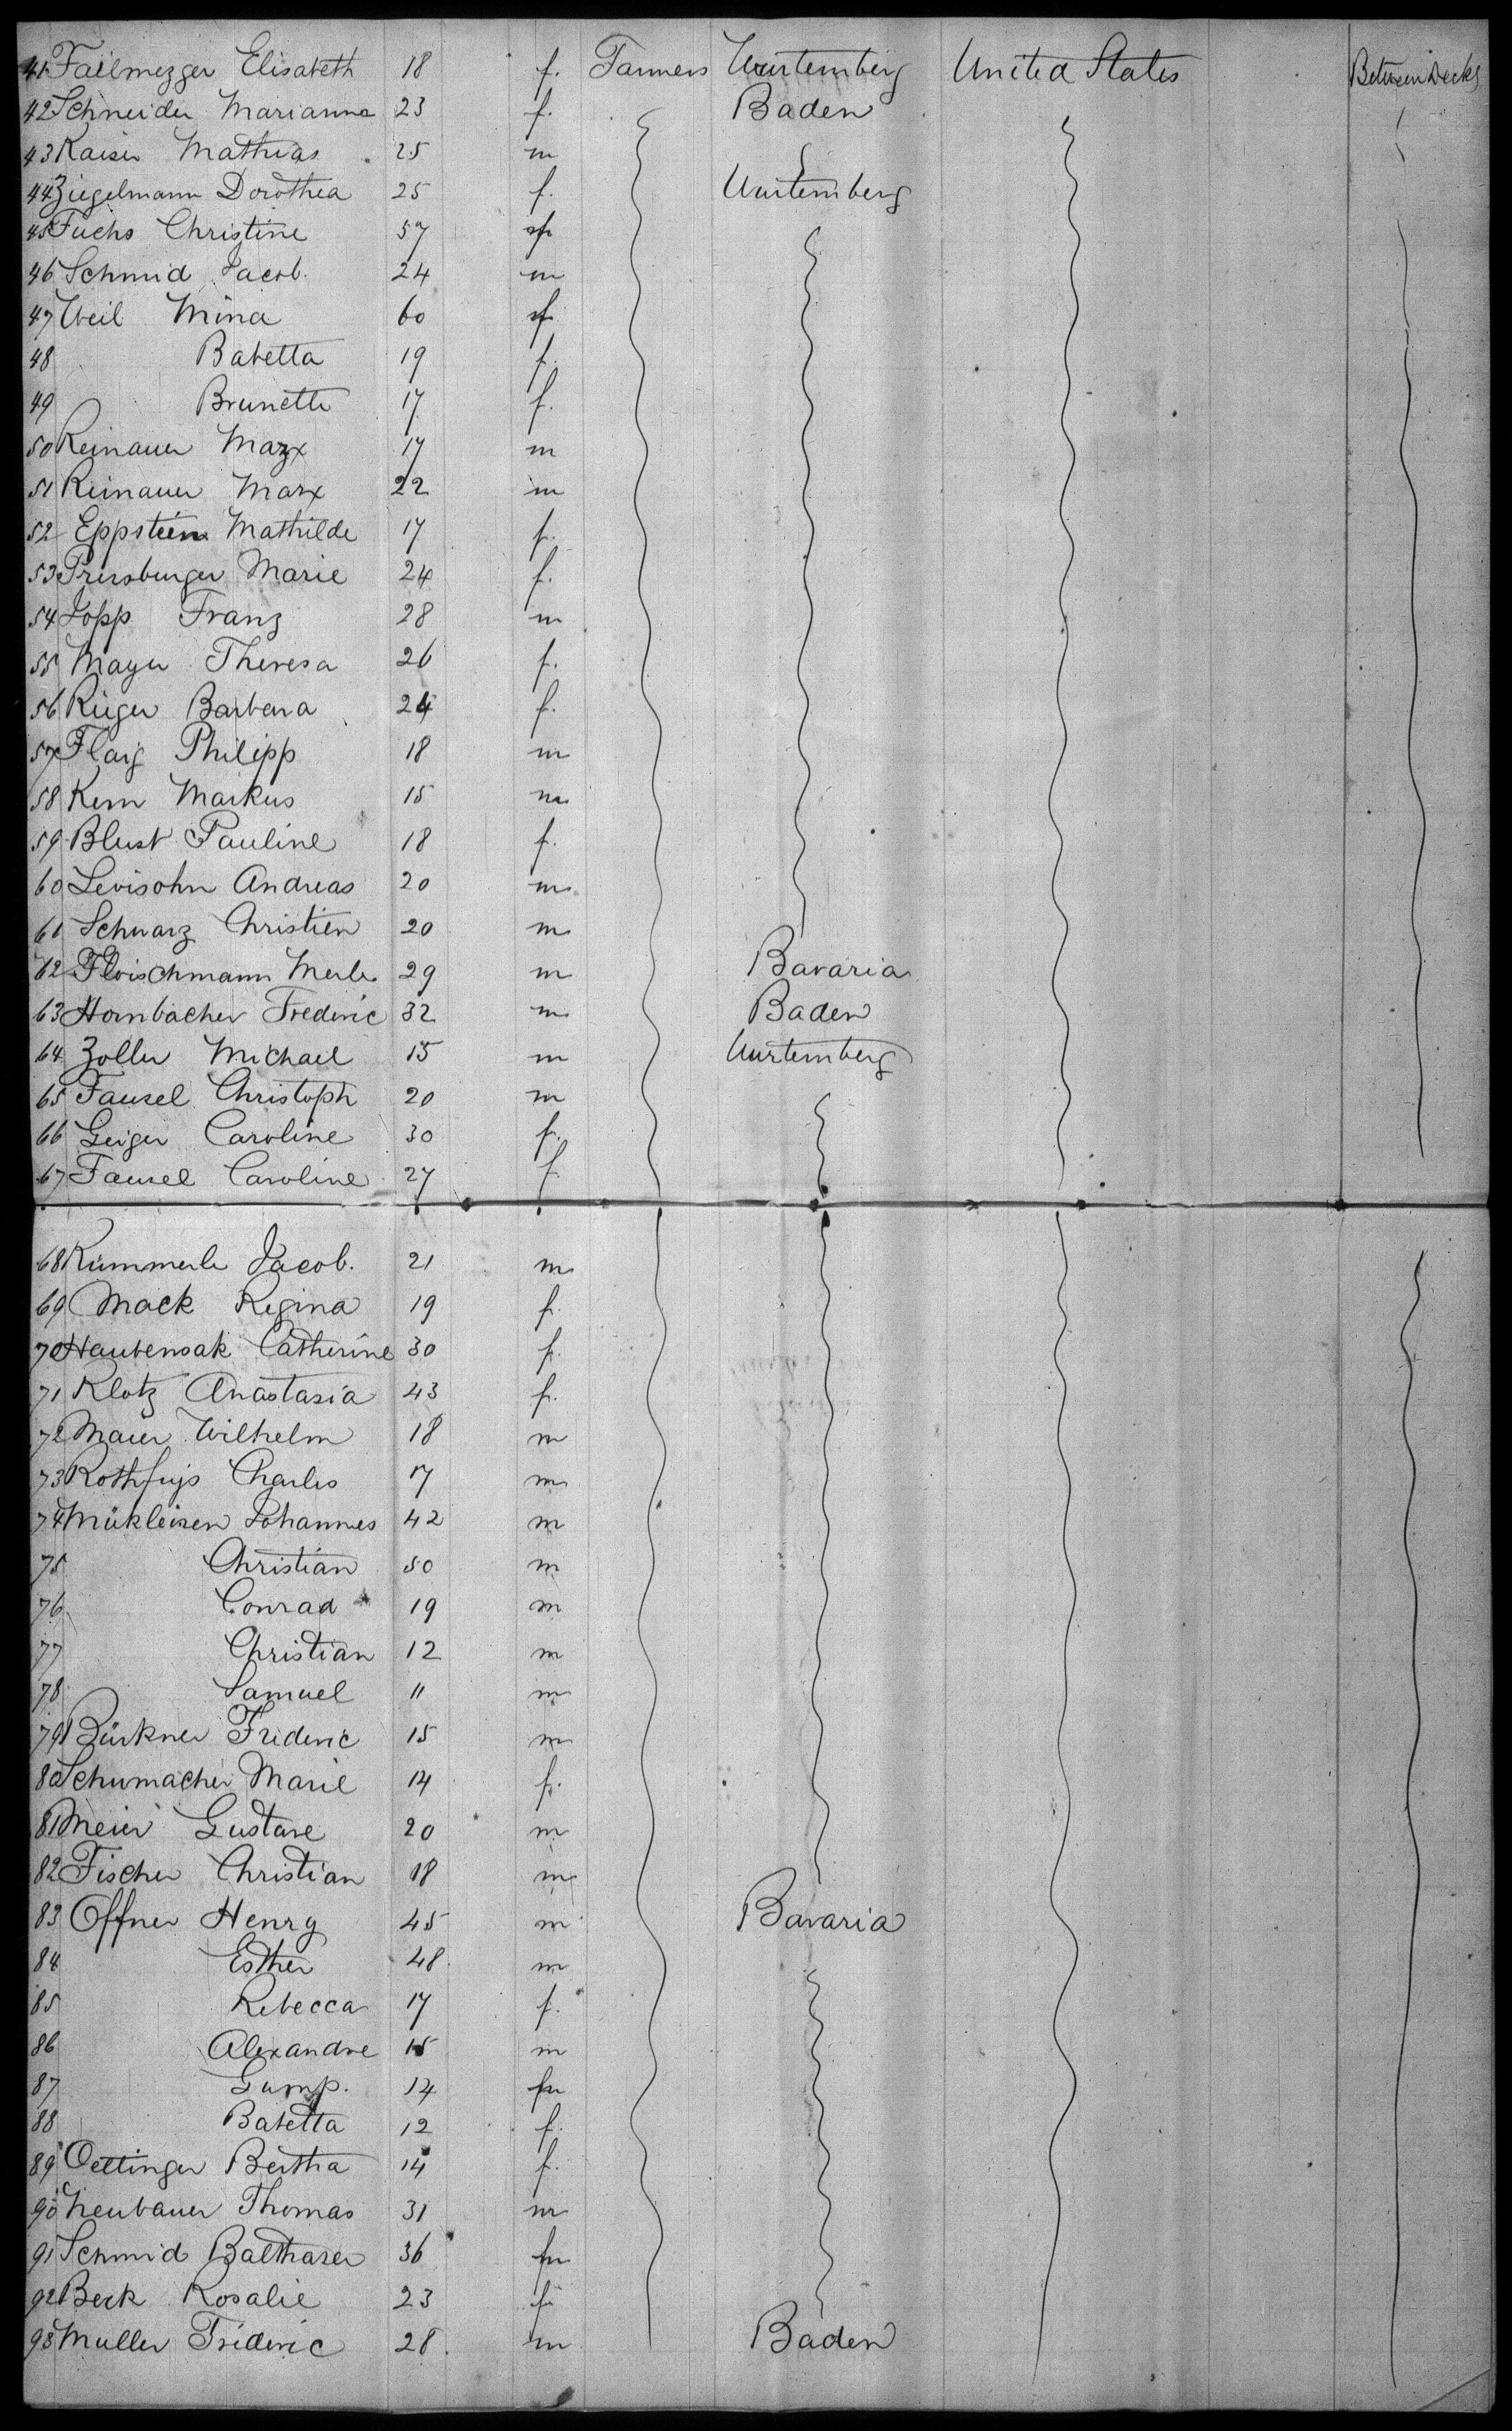 41 Failmezger Elisabeth 18 f. Farmers Wurtemberg United States Between Decks
42 Schneider Marianna 23 f. Baden
43 Kaiser Mathias 25 m
44 Ziegelmann Dorothea 25 f. Wurtemberg
45 Fuchs Christine 57 f
46 Schmid Jacob. 24 m
47 Weil Mina 60 f
48 Babetta 19 f.
49 Brunette 17 f.
50 Reinauer Max 17 m
51 Reinauer Marx 22 m
52 Eppstein Mathilde 17 f.
53 Presburger Marie 24 f.
54 Jopp Franz 28 m
55 Mayer Theresa 26 f.
56 Rieger Barbara 24 f.
57 Flaig Philipp 18 m
58 Kern Markus 15 m
59 Blust Pauline 18 f.
60 Levisohn Andreas 20 m
61 Schwarz Christien 20 m
62 Floischmann Merle 29 m Bavaria
63 Hornbacher Frederic 32 m Baden
64 Zoller Michael 15 m Wurtemberg
65 Fausel Christoph 20 m
66 Geiger Caroline 30 f.
67 Fausel Caroline 27 f
68 Kümmerle Jacob. 21 m
69 Mack Regina 19 f.
70 Haubensak Catherine 30 f.
71 Klotz Anastasia 43 f.
72 Maier Wilhelm 18 m
73 Rothfuss Charles 17 m
74 Mükleisen Johannes 42 m
75 Christian 50 m
76 Conrad 19 m
77 Christian 12 m
78 Samuel 11 m
79 Bürkner Frederic 15 m
80 Schumacher Marie 14 f.
81 Meier Gustave 20 m
82 Fischer Christian 18 m
83 Offner Henry 45 m Bavaria
84 Esther 48 m
85 Rebecca 17 f.
86 Alexandre 15 m
87 Gump. 14 m
88 Babetta 12 f.
89 Oettinger Bertha 14 f.
90 Neubauer Thomas 31 m
91 Schmid Balthaser 36 m
92 Beck Rosalie 23 f
93 Muller Frideric 28 m Baden